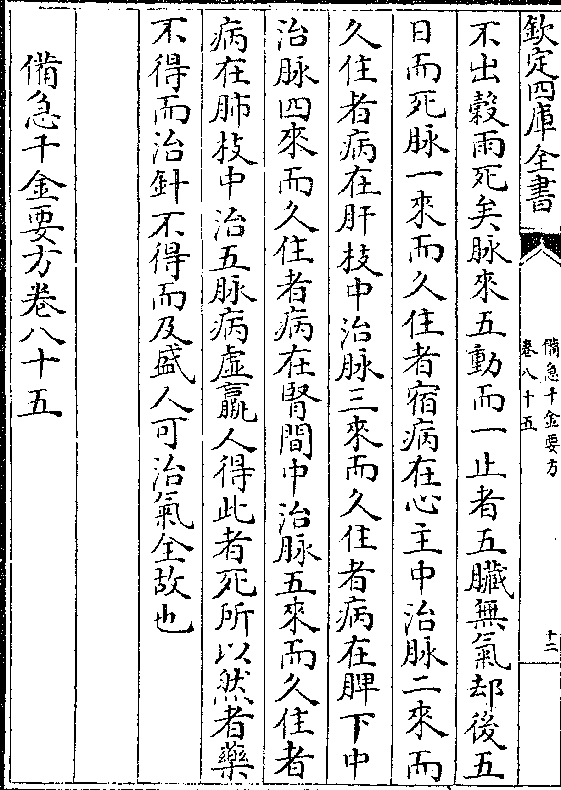 欽定四庫全書
備急千金要方
卷八十五
十二
不出穀雨死矣脉來五動而一止者五臟無氣却後五
日而死脉一來而久住者宿病在心主中治脉二來而
久住者病在肝枝中治脉三來而久住者病在脾下中
治脉四來而久住者病在腎間中治脉五來而久住者
病在肺枝中治五脉病虚羸人得此者死所以然者藥
不得而治針不得而及盛人可治氣全故也
備急千金要方卷八十五